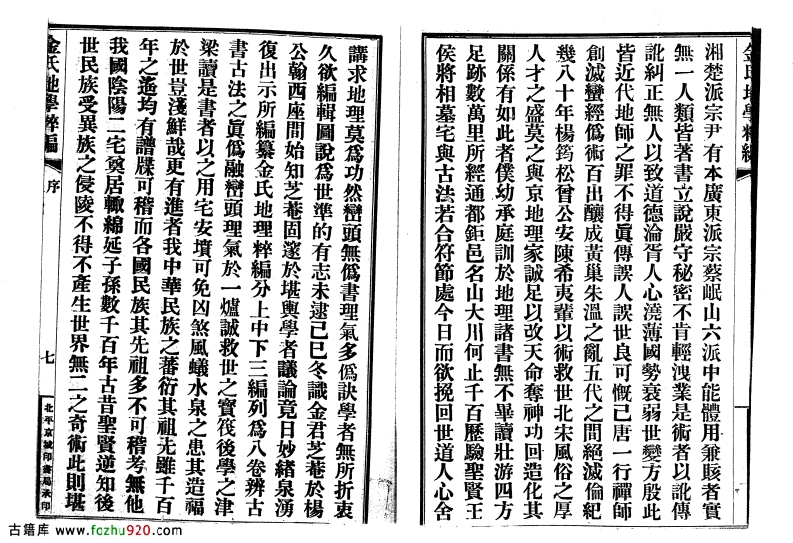 金氏地學粹編
湘楚派宗尹有本廣東派宗蔡岷山六派中能體用兼賅者實
無一人類皆著書立說嚴守秘密不肯輕洩業是術者以訛傳
訛糾正無人以致道德淪胥人心澆薄國勢衰弱世變方殷此
皆近代地師之罪不得眞傳誤人誤世良可慨已唐一行禪師
創滅蠻經僞術百出釀成黃巢朱溫之亂五代之間絕滅倫紀
幾八十年楊筠松曾公安陳希夷輩以術救世北宋風俗之厚
人才之盛莫之與京地理家誠足以改天命奪神功回造化其
關係有如此者僕幼承庭訓於地理諸書無不畢讀壯游四方
足跡數萬里所經通都鉅邑名山大川何止千百歷驗聖賢王
侯將相墓宅與古法若合符節處今日而欲挽回世道人心舍
講求地理莫爲功然巒頭無僞書理氣多僞訣學者無所折衷
久欲編輯圖說爲世準的有志未逮己巳冬識金君芝菴於楊
公翰西座間始知芝菴固邃於堪輿學者議論竟日妙緒泉湧
復出示所編纂金氏地理粹編分上中下三編列爲八卷辨古
書古法之眞僞融巒頭理氣於一爐誠救世之寶筏後學之津
梁讀是書者以之用宅安墳可免凶煞風蟻水泉之患其造福
於世豈淺鮮哉更有進者我中華民族之蕃衍其祖先雖千百
年之遙均有譜牒可稽而各國民族其先祖多不可稽考無他
我國陰陽二宅奠居輙綿延子孫數千百年古昔聖賢逆知後
世民族受異族之侵陵不得不產生世界無二之奇術此則堪
金氏地學粹編
序
七
北平京城印書局承印
古籍库 www.fozhu920.com